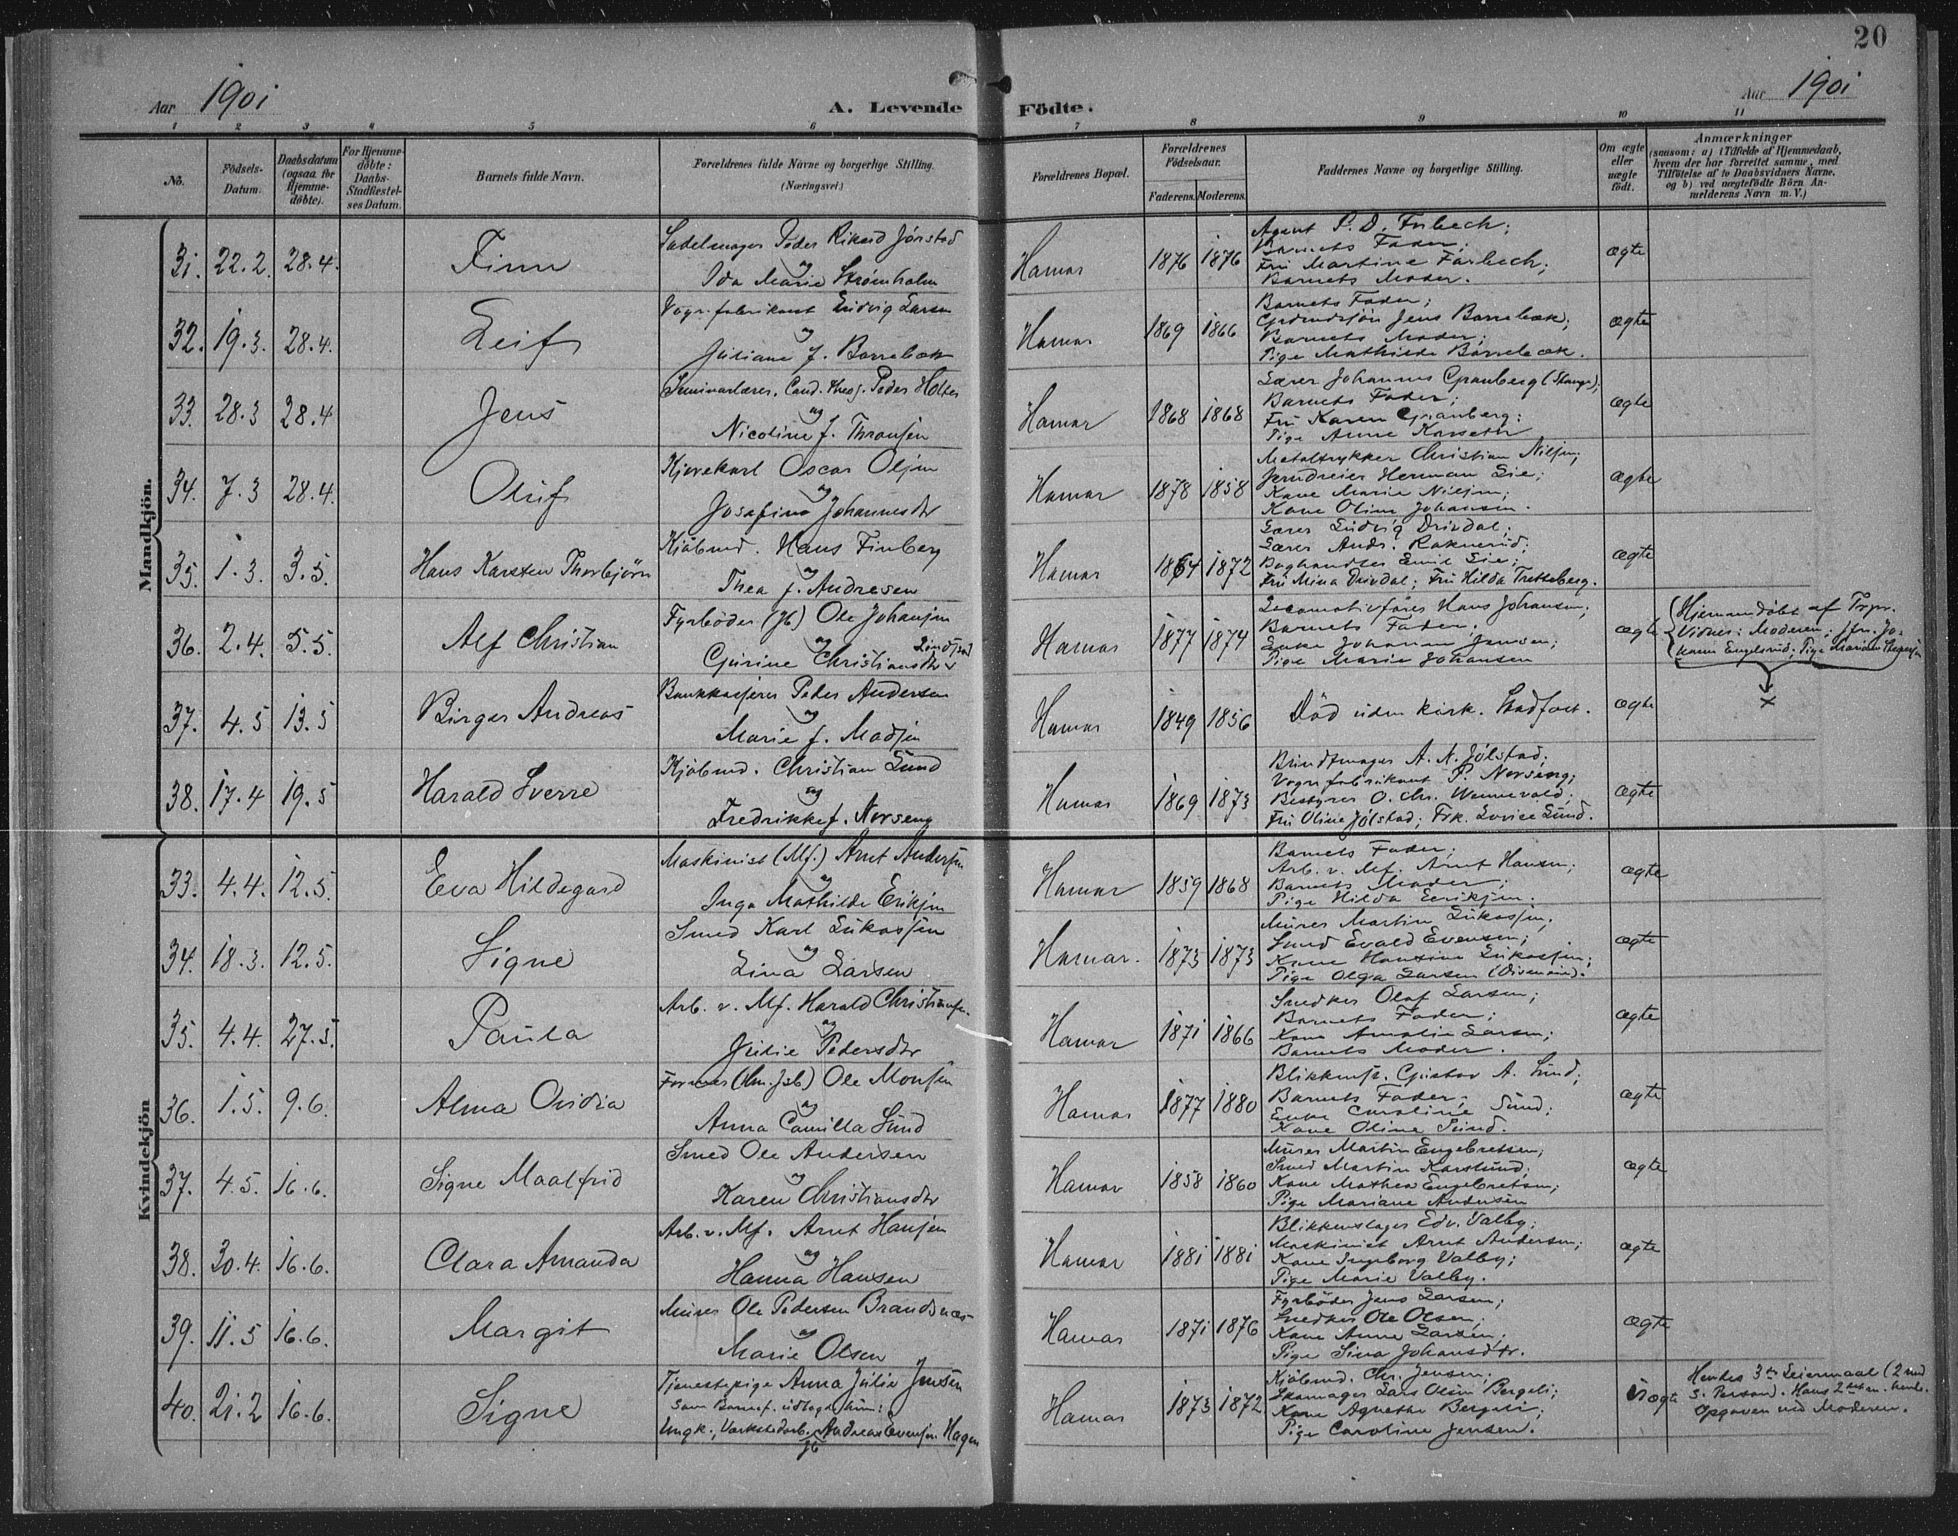 20
Aar 1901
A. Levende Födte.
Aar 1901
1 2 3 4 5 6 7 8 9 10 11
No.
Födsels-Datum.
Daabsdatum (ogsaa for Hjemme-döbte).
For Hjemme-döbte: Daabs-Stadfæstel-ses Datum.
Barnets fulde Navn.
Forældrenes fulde Navne og borgerlige Stilling.
(Næringsvei)
Forældrenes Bopæl.
Forældrenes Födselsaar.
Faderens. Moderens.
Faddernes Navne og borgerlige Stilling.
Om ægte eller uægte födt.
Anmærkninger
(saasom: a) i Tilfælde af Hjemmedaab,
hvem der har forrettet samme, med
Tilföielse af to Daabsvidners Navne,
og b) ved uægtefödte Börn An-
melderens Navn m. V.)
Mandkjön.
31. 22.2. 28.4. Finn
Sadelmager Peder Rikard Jørstad
og
Ida Marie Strømholm
Hamar 1876 1876
Agent P. D. Farbech;
Barnets Fader;
Fru Martine Farbech;
Barnets Moder.
ægte
32. 19.3. 28.4. Leif
Vognfabrikant Ludvig Larsen
og
Juliane f. Borrebæk
Hamar 1869 1866
Barnets Fader;
Jens Borrebæk;
Barnets Moder;
Pige Mathilde Borrebæk.
ægte
33. 28.3 28.4 Jens
Seminarlærer, Cand. theol. Peder Holter
og
Nicoline f. Thransen
Hamar 1868 1868
Lærer Johannes Granberg (Stange);
Barnets Fader;
Fru Karen Granberg;
Pige Anne
ægte
34. 7.3 28.4. Oluf
Kjørekarl Oscar Olsen
og
Josefine Johannesdtr
Hamar 1878 1858
Metaltrykker Christian Nilsen;
Herman Lie;
Kone Marie Nilsen;
Kone Oline Johansen.
ægte
35. 1.3. 3.5. Hans Karsten Thorbjørn
Kjöbmd. Hans Finberg
og
Thea f. Andresen
Hamar 1864 1872
Lærer Ludvig Drivdal;
Lærer Andr. Raknerud;
Boghandler Emil Lie;
Fru Mina Drivdal; Fru Hilda Tretteberg.
ægte
36. 2.4. 5.5. Alf Christian
Fyrböder (Jb) Ole Johansen
og Lindstad
Gurine Christiansdtr
Hamar 1877 1874
Locomotivförer Hans Johansen;
Barnets Fader;
Enke Johanne Jensen;
Pige Marie Johansen
ægte
Hjemmedøbt af
Vidner: Moderen; Jfru. Jo-
hanne Engelsrud; Pige
x
37. 4.5 13.5 Birger Andreas
Bankkasserer Peder Andersen
og
Marie f. Madsen
Hamar 1849 1856
Död uden kirk. Stadfæst.
ægte
38. 17.4 19.5 Harald Sverre
Kjöbmd. Christian Lund
og
Fredrikke f. Norseng
Hamar 1869 1873
Bundtmager A. N. Jølstad;
Vognfabrikant P. Norseng;
Bestyrer O. Chr. Wennevold;
Fru Oline Jølstad; Frk. Lovise Lund.
ægte
Kvindekjön
33. 4.4. 12.5. Eva Hildegard
Maskinist (Mf.) Arnt Andersen
og
Inga Mathilde Eriksen
Hamar 1859 1868
Barnets Fader;
Arb. v. Mf. Arnt Hansen;
Barnets Moder;
Pige Hilda Eriksen.
ægte
34. 18.3. 12.5. Signe
Smed Karl Lukassen
og
Lina Larsen
Hamar. 1873 1873
Murer Martin Lukassen;
Smed Evald Evensen;
Kone Hansine Lukassen;
Pige Olga Larsen
ægte
35. 4.4. 27.5. Paula
Arb. v. Mf. Harald Christiansen
og
Julie Pedersdtr
Hamar 1871 1866
Snedker Olaf Larsen;
Barnets Fader;
Kone Amalie Larsen;
Barnets Moder.
ægte
36. 1.5. 9.6. Alma Ovidia
Former (Hm. Jsb) Ole Monsen
og
Anna Camilla Lund
Hamar 1877 1880
Blikkensl. Gustav A. Lund;
Barnets Fader;
Enke Caroline Lund;
Kone Oline Lund.
ægte
37. 4.5. 16.6. Signe Maalfrid
Smed Ole Andersen
og
Karen Christiansdtr
Hamar 1858 1860
Murer Martin Engebretsen;
Smed Martin Karslund;
Kone Mathea Engebretsen;
Pige Mariane Andersen
ægte
38. 30.4. 16.6. Clara Amanda
Arb. v. Mf. Arnt Hansen
og
Hanna Hansen
Hamar 1881 1881
Blikkenslager Edv. Valby;
Maskinist Arnt Andersen;
Kone Ingeborg Valby;
Pige Marie Valby.
ægte
39. 11.5 16.6. Margit
Murer Ole Pedersen Brandsnæs
og
Marie Olsen
Hamar 1871 1876
Fyrböder Jens Larsen;
Snedker Ole Olsen;
Kone Anne Larsen;
Pige Lina Johansdtr.
ægte
40. 21.2 16.6. Signe
Tjenestepige Anna Julie Jensen
som Barnef. udlagde hun:
Ungk., Værkstedarb. Andreas Evensen Hagen
Jb
Hamar 1873 1872
Kjöbmd. Chr. Jensen;
Skomager Lars Olsen Bergeli;
Kone Agnethe Bergeli;
Pige Caroline Jensen.
uægte
Hendes 3die Leiermaal (2 med
s. Person). Hans 2det m. hende.
Opgaven ved Moderen.